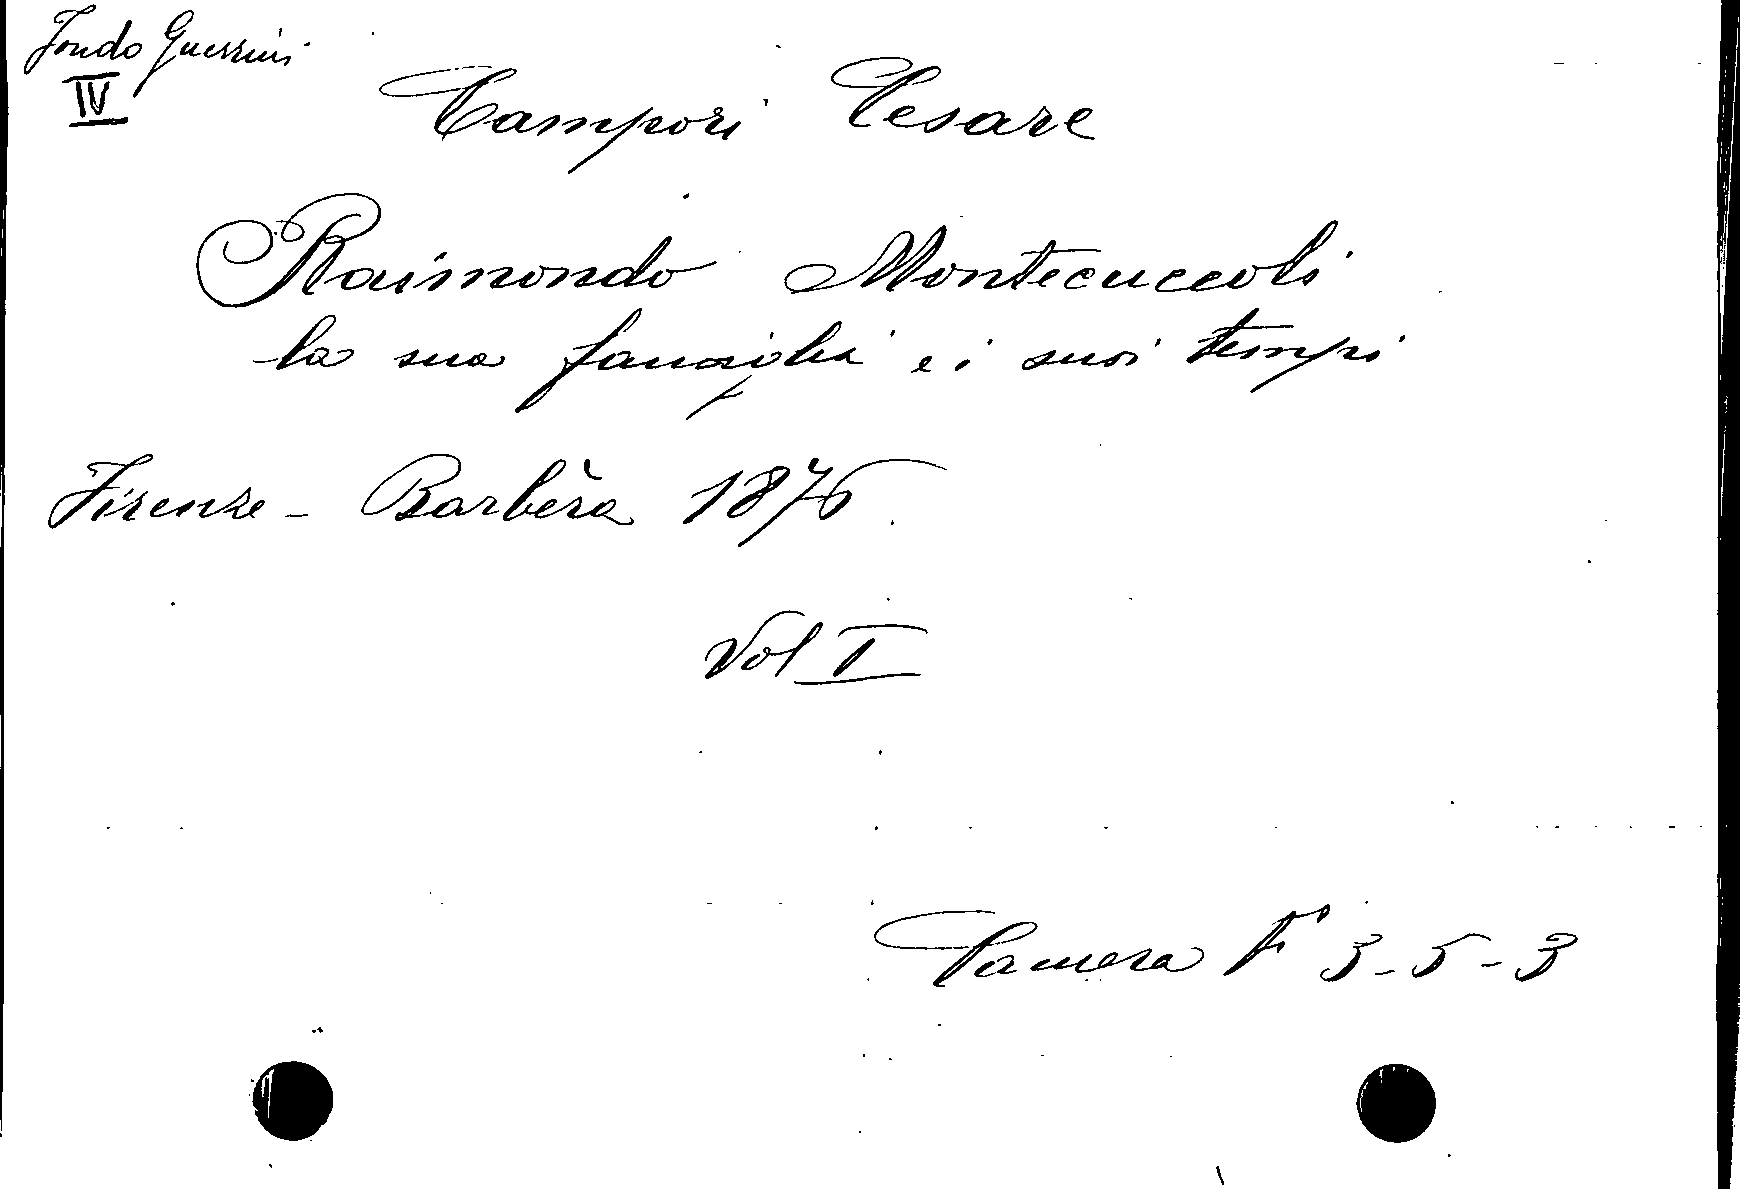 Fondo Guerrini
IV
Campori Cesare
Raimondo Montecuccoli
la sua famiglia e i suoi tempi
Firenze - Barbèra 1876
Vol I
Camera F 3-5-3